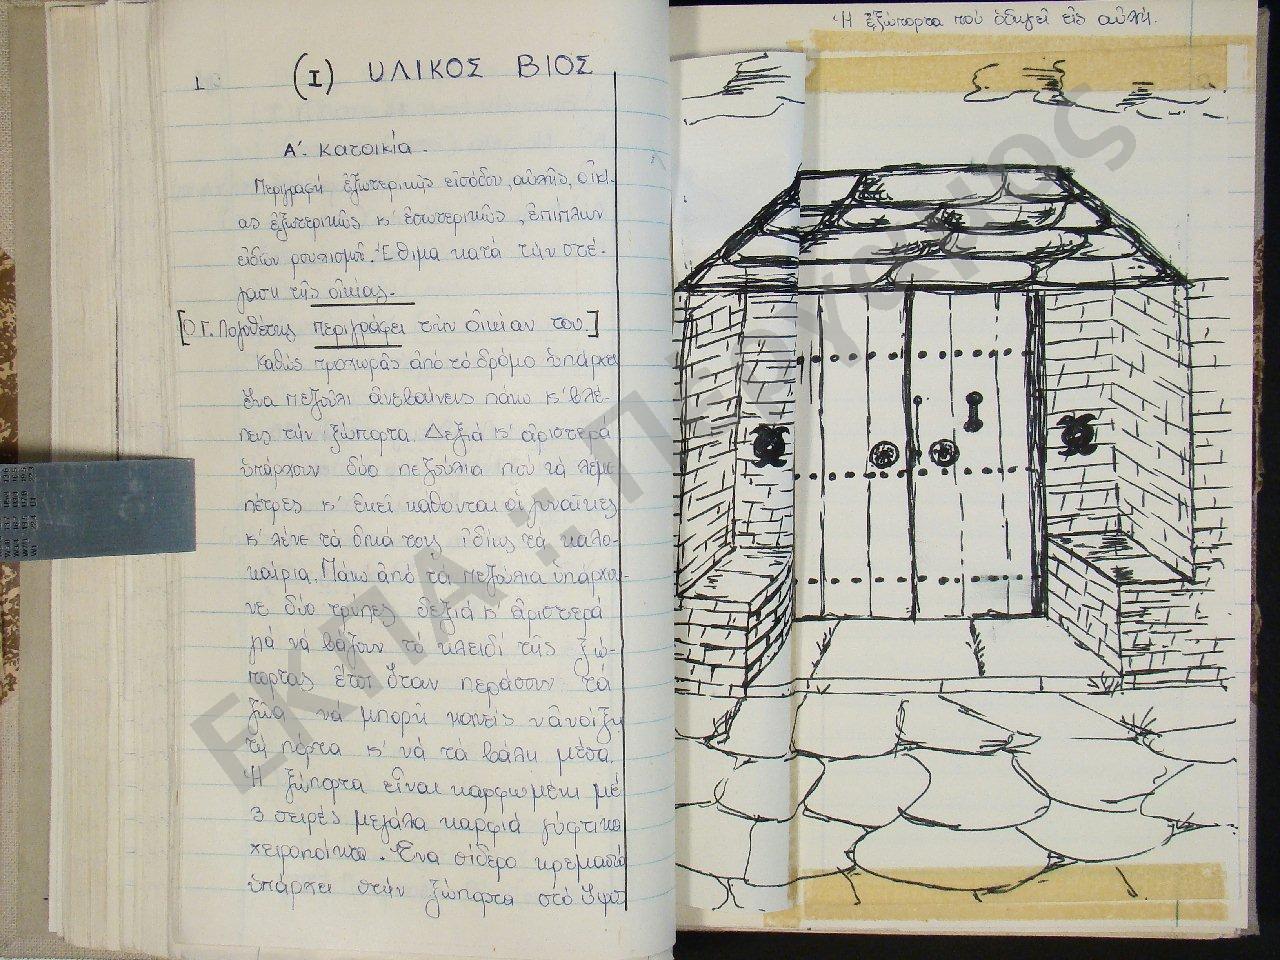 1
(I) ΥΛΙΚΟΣ ΒΙΟΣ
Α'. Κατοικία.
Περιγραφή ἐξωτερικῆς εἰσόδου, αὐλῆς, οἰκί-
ας ἐξωτερικῶς κ' ἐσωτερικῶς, ἐπίπλων
εἰδῶν ρουχισμοῦ. Ἔθιμα κατά τήν στέ-
γαση τῆς οἰκίας.
[Ὁ Γ. Λογοθέτης περιγράφει τήν οἰκίαν του.]
Καθώς προχωρᾶς ἀπό τό δρόμο ὑπάρχει
ἕνα πεζούλι ἀνεβαίνεις πάνω κ' βλέ-
πεις τήν ξώπορτα. Δεξιά κ' ἀριστερά
ὑπάρχουν δύο πεζούλια πού τά λέμε
πέτρες κ' ἐκεῖ κάθονται οἱ γυναῖκες
κ' λένε τά δικά τους ἰδίως τά καλο-
καίρια. Πάνω ἀπό τά πεζούλια ὑπάρχου-
νε δύο τρύπες δεξιά κ' ἀριστερά
γιά νά βάζουν τό κλειδί τῆς ξώ-
πορτας ἔτσι ὅταν περάσουν τά
ζῶα νά μπορῆ κανείς ν' ἀνοίξη
τή πόρτα κ' νά τά βάλη μέσα.
Ἡ ξώπορτα εἶναι καρφωμένη μέ
3 σειρές μεγάλα καρφιά γύφτικα
χειροποίητα. Ἕνα σίδερο κρεμαστό
ὑπάρχει στήν ξώπορτα στό ὕψος
Ἡ ἐξώπορτα πού ὁδηγεῖ εἰς αὐλή.
ΕΚΠΑ :: ΠΕΡΓΑΜΟΣ